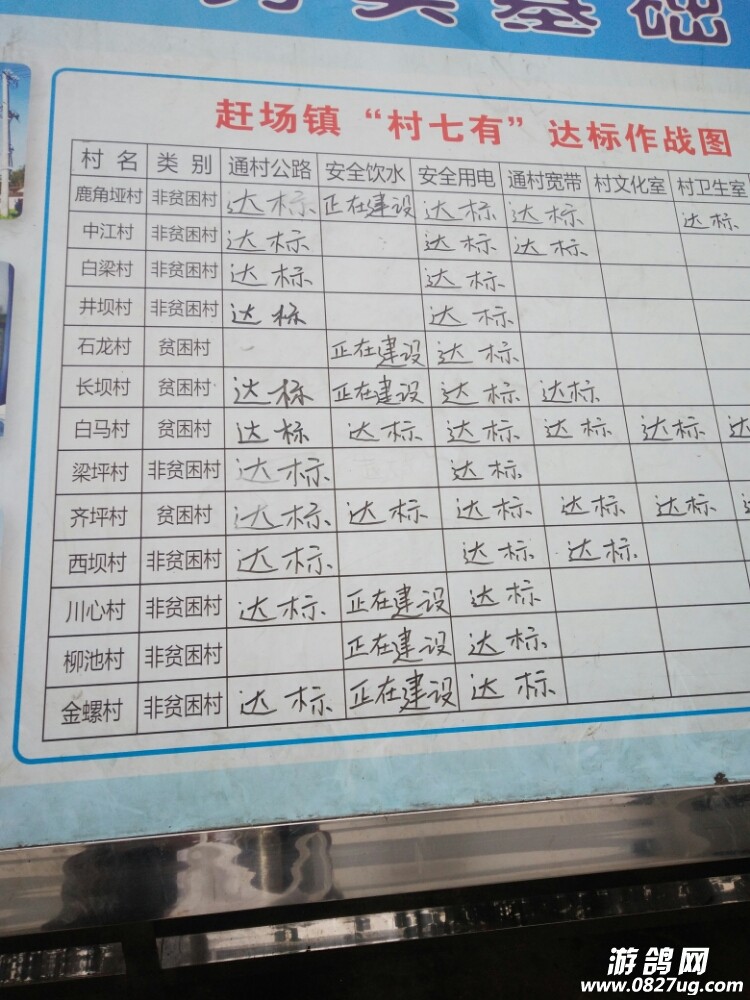 基础
赶场镇“村七有”达标作战图
村名 类别 通村公路 安全饮水 安全用电 通村宽带 村文化室 村卫生室
鹿角垭村 非贫困村 达标 正在建设 达标 达标 达标
中江村 非贫困村 达标 达标 达标
白梁村 非贫困村 达标 达标
井坝村 非贫困村 达标 达标
石龙村 贫困村 正在建设 达标
长坝村 贫困村 达标 正在建设 达标 达标
白马村 贫困村 达标 达标 达标 达标 达标 达
梁坪村 非贫困村 达标 达标
齐坪村 贫困村 达标 达标 达标 达标 达标
西坝村 非贫困村 达标 达标 达标
川心村 非贫困村 达标 正在建设 达标
柳池村 非贫困村 正在建设 达标
金螺村 非贫困村 达标 正在建设 达标
游鸽网
www.0827ug.com